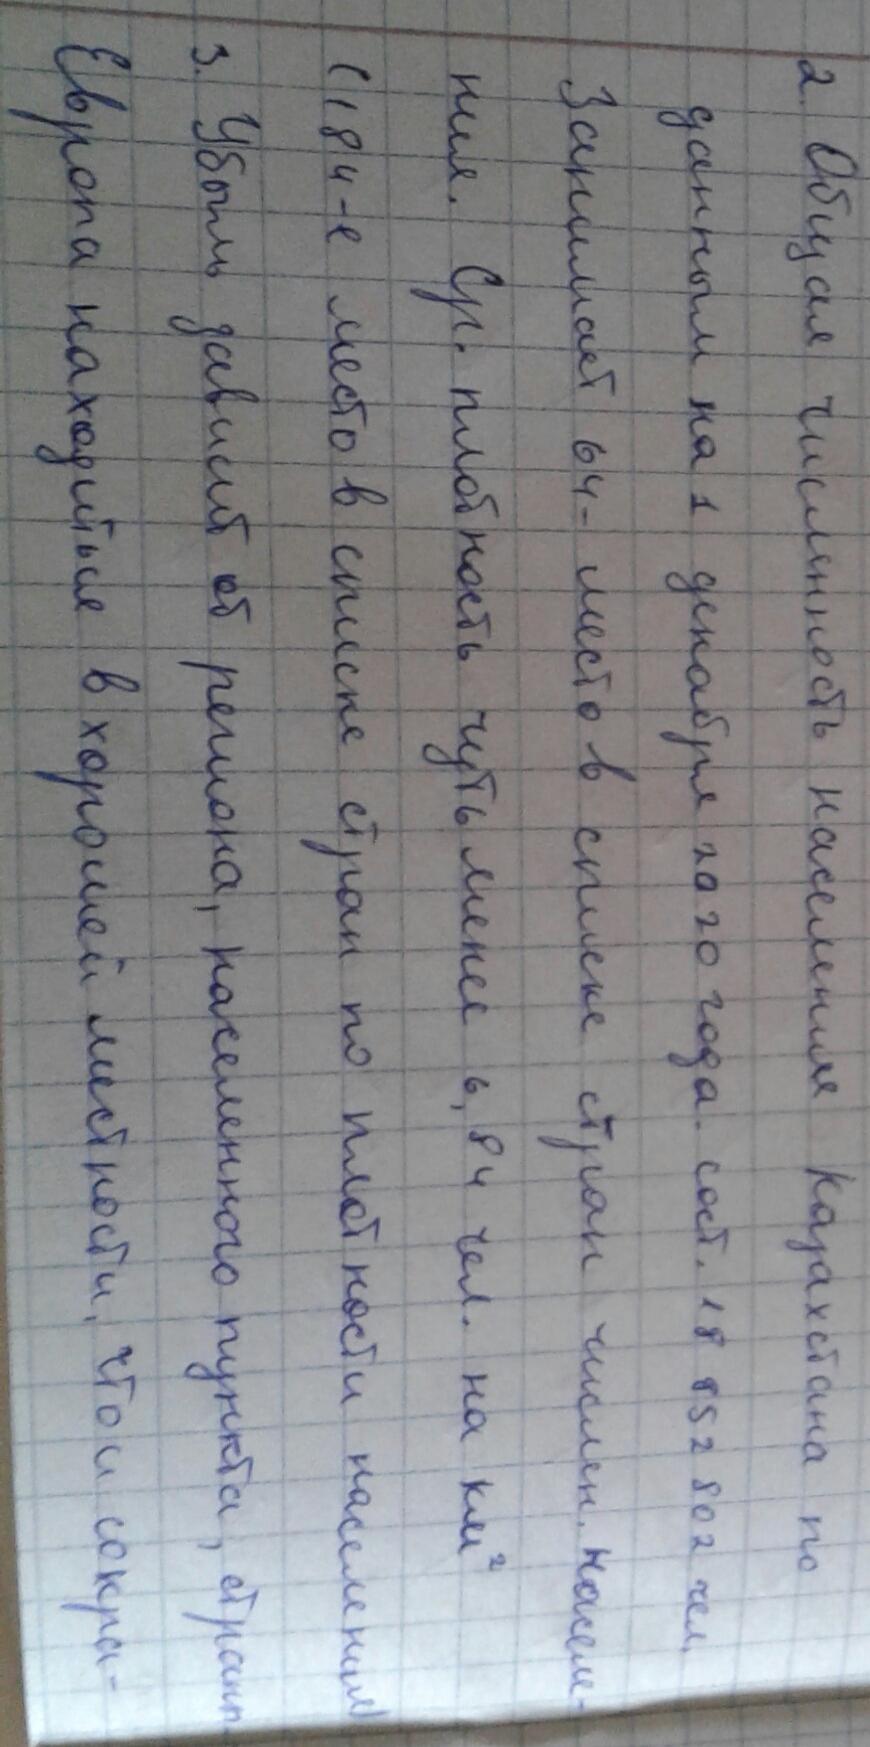 2. Общая численность населения Казахстана по
данным на 1 декабря 2020 года. сост. 18 852 802 чел,
Занимает 64- место в списке стран числен. населе-
ния. Ср. плотность чуть менее 6,84 чел. на км²
(184-е место в списке стран по плотности населения)
3. Убыль зависит от региона, населенного пункта, страны.
Европа находиться в хорошей местности, что и сокра-